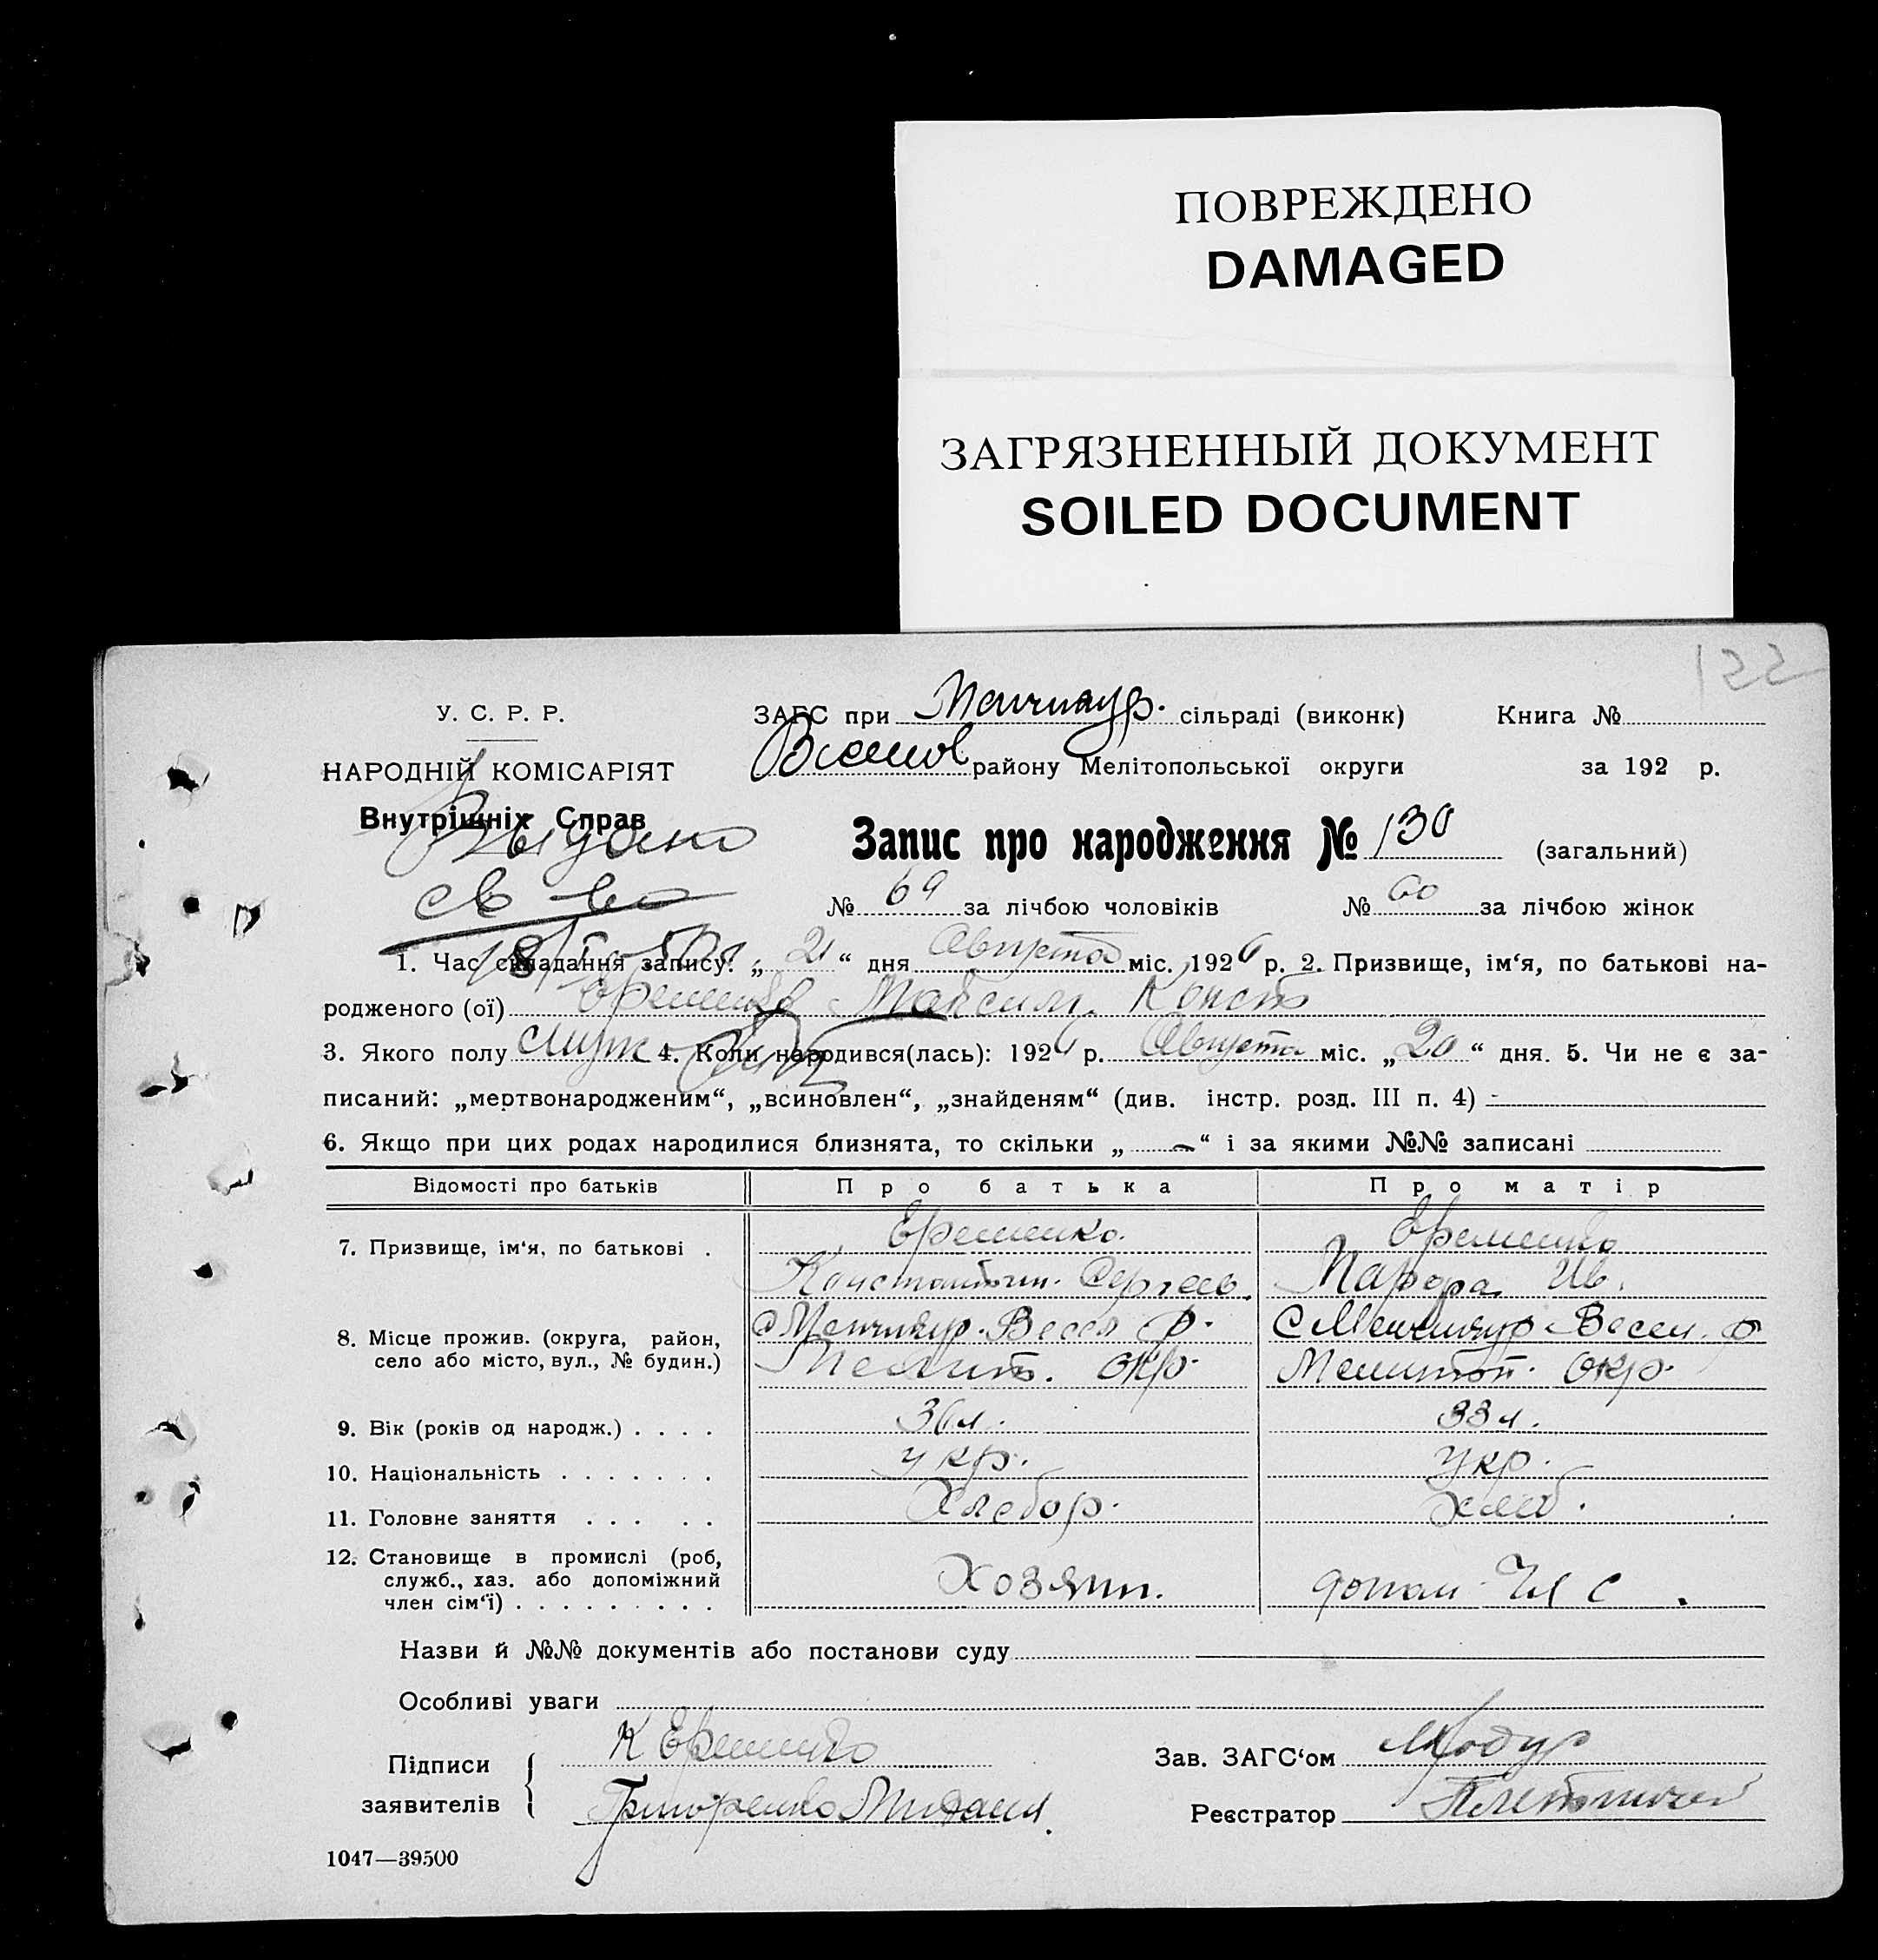 ПОВРЕЖДЕНО
DAMAGED
ЗАГРЯЗНЕННЫЙ ДОКУМЕНТ
SOILED DOCUMENT
122
У. С. Р. Р.
ЗАГС при Менчикур. сільраді (виконк) Книга №
НАРОДНІЙ КОМІСАРІЯТ
Весел району Мелітопольської округи за 192 р.
Внутрішніх Справ
Выдано
Запис про народження № 130 (загальний)
св-во
№ 69 за лічбою чоловіків № 60 за лічбою жінок
1. Час складання запису: „ 21 “ дня Августа міс. 1926 р. 2. Призвище, ім‘я, по батькові на-
родженого (ої) Еременко Максим Конст
3. Якого полу муж 4. Коли народився(лась): 1926 р. Августа міс. „ 20 “ дня. 5. Чи не є за-
писаний: „мертвонародженим“, „всиновлен“, „знайденям“ (див. інстр. розд. III п. 4) -
6. Якщо при цих родах народилися близнята, то скільки „ — “ і за якими №№ записані
Відомості про батьків Про батька Про матір
7. Призвище, ім‘я, по батькові . Еременко. Еременко
Константин. Сергеев. Ив.
8. Місце прожив. (округа, район, с Менчикур. Весел р. С Менчикур Весел. р
село або місто, вул., № будин.) Мелит. окр. Мелитоп. окр.
9. Вік (років од народж.) . . . . 36 л. 33 л.
10. Національність . . . . . . . укр. Укр.
11. Головне заняття . . . . . Хлебор. хлеб.
12. Становище в промислі (роб,
служб., хаз. або допоміжний Хозяин. допом. Чл С.
член сім‘ї) . . . . . . . . .
Назви й №№ документів або постанови суду
Особливі уваги
Підписи К Еременко Зав. ЗАГС‘ом
заявителів Григоренко Михаил. Реєстратор
1047—39500